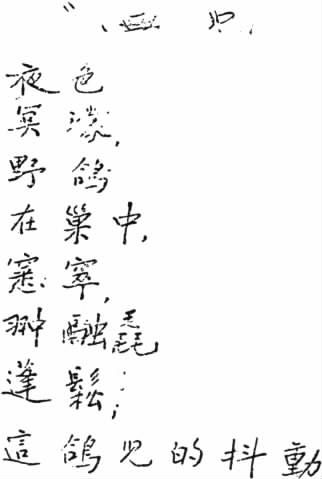 夜色
冥濛,
野鴿
在巢中,
窸窣,
翀融毳
蓬鬆;
這鴿兒的抖動